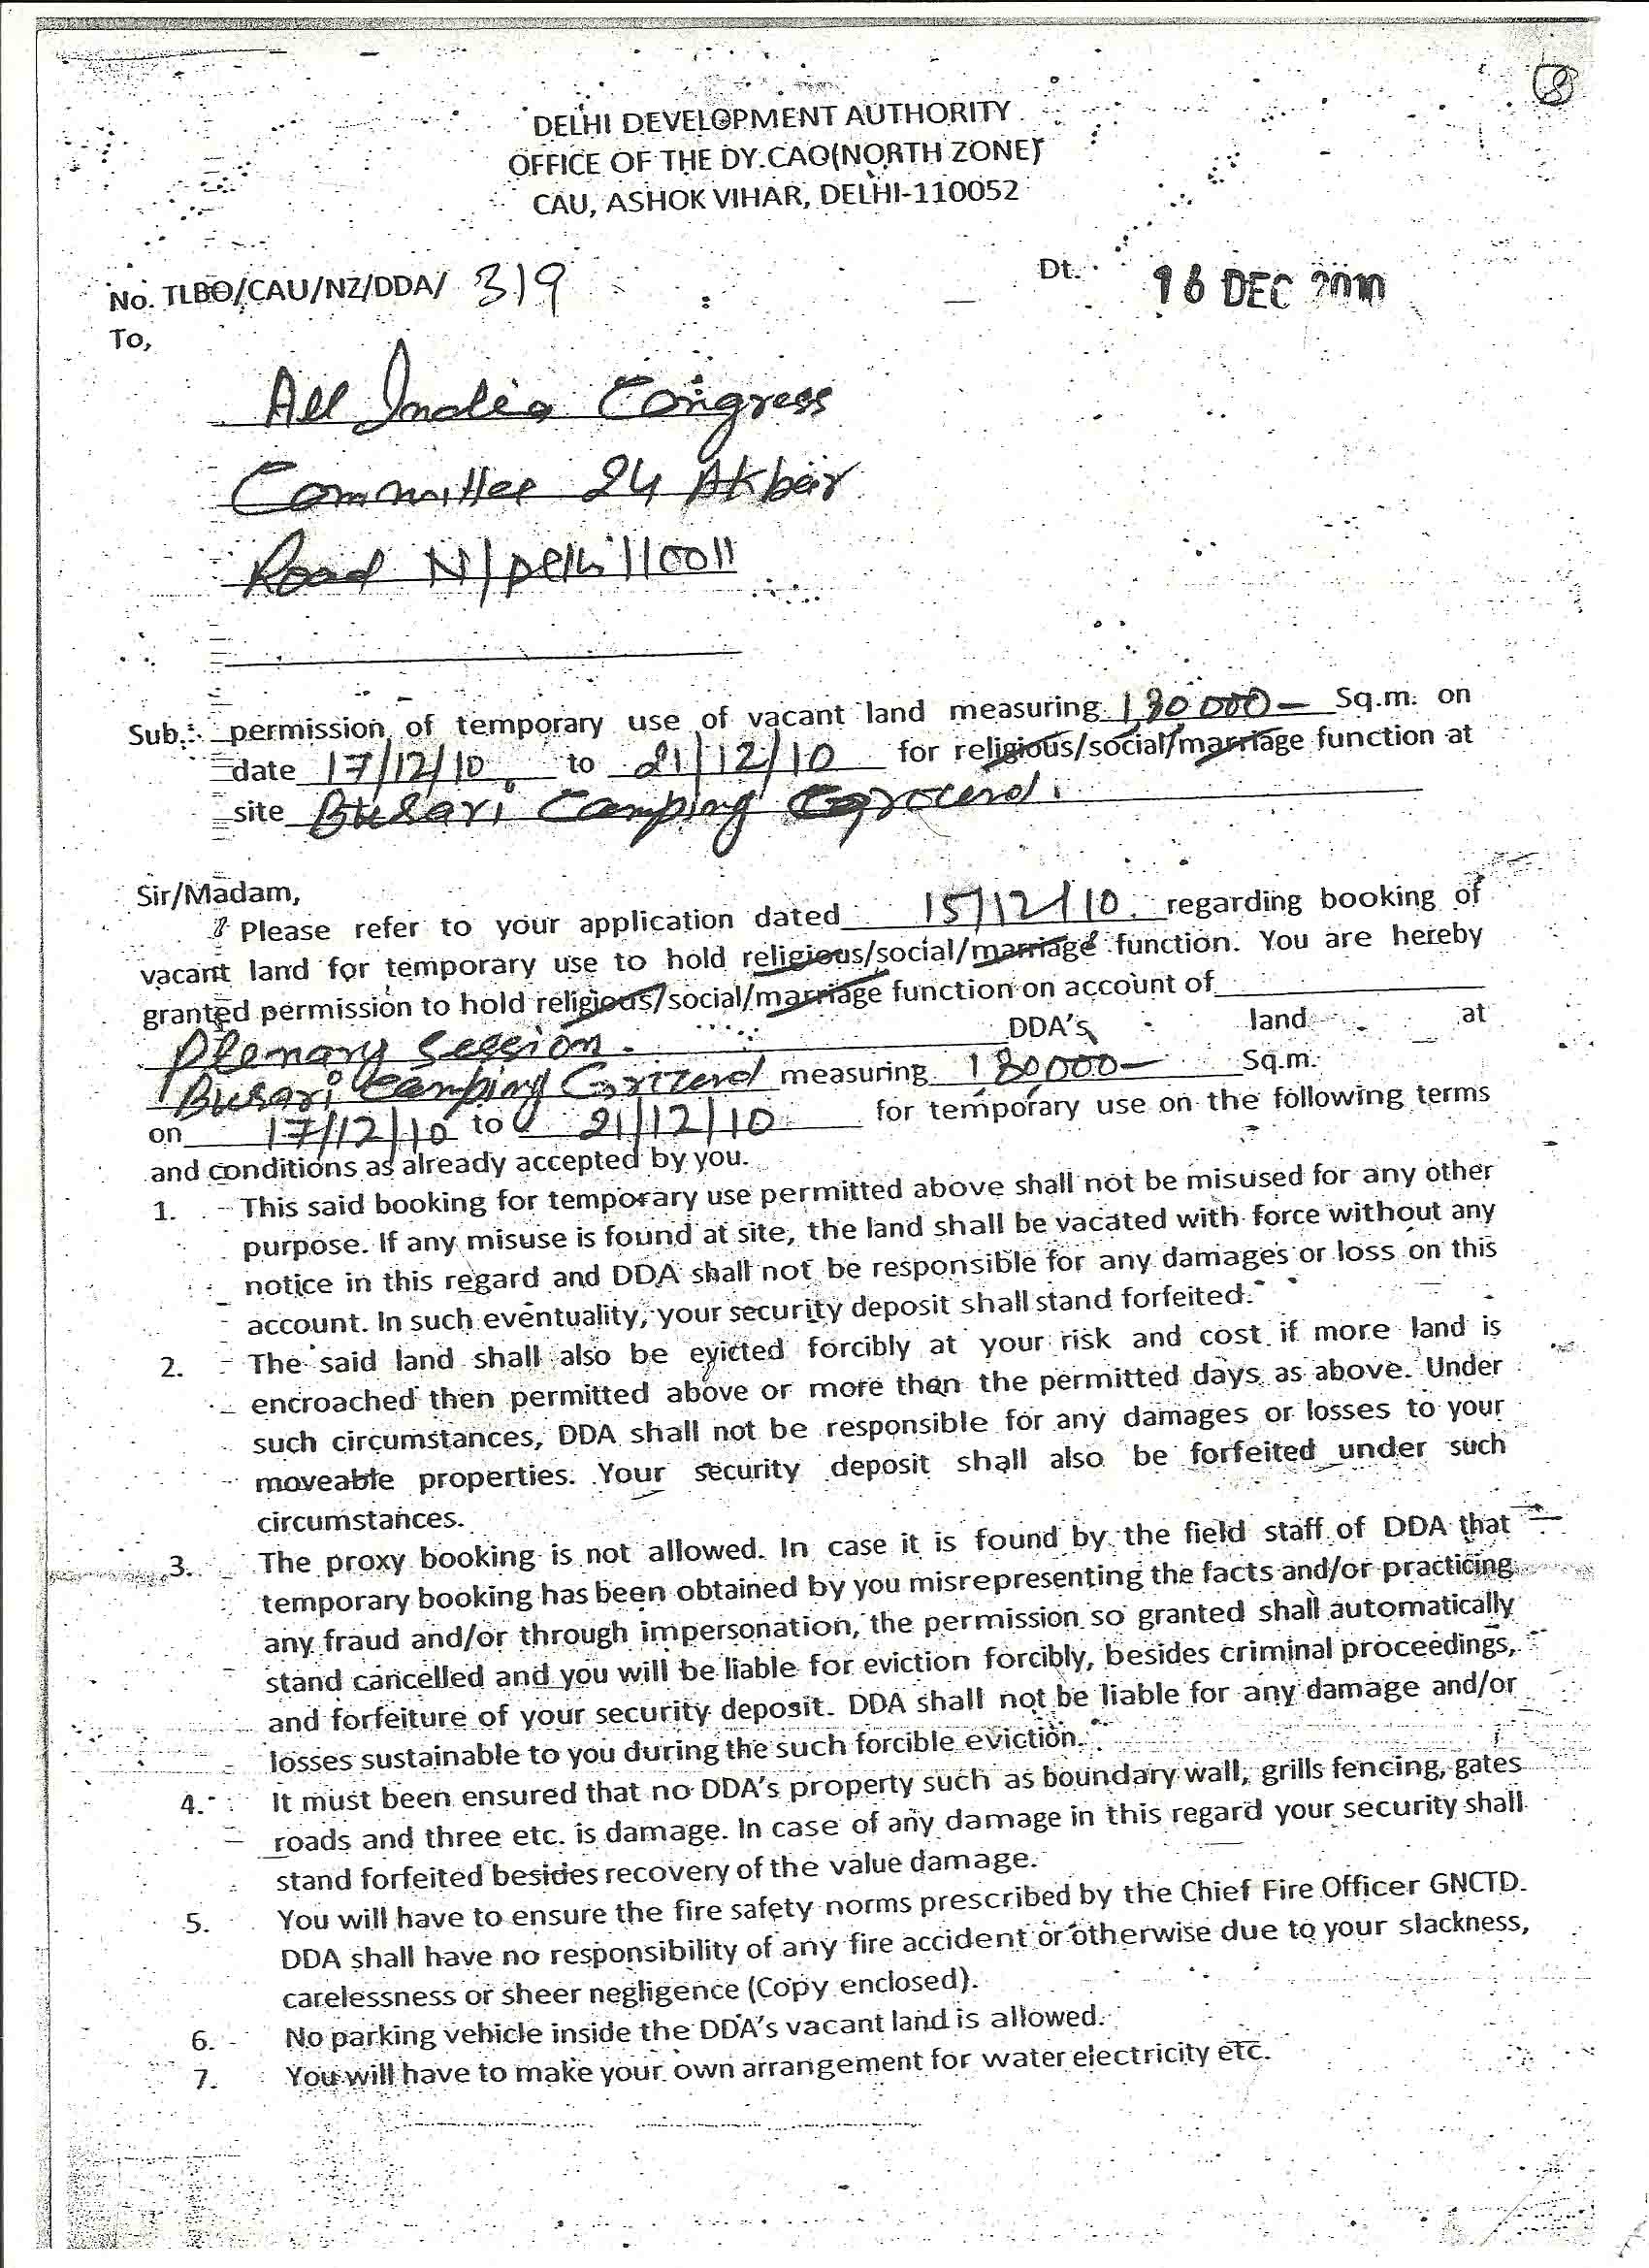 8
DELHI DEVELOPMENT AUTHORITY
OFFICE OF THE DY.CAO(NORTH ZONE)
CAU, ASHOK VIHAR, DELHI-110052
No. TLBO/CAU/NZ/DDA/ 319
Dt. 16 DEC 2010
To,
All India Congress
Committee 24 Akbar
Road N/Delhi 110011
Sub.: permission of temporary use of vacant land measuring 1,80,000- Sq.m. on
date 17/12/10 to 21/12/10 for religious/social/marriage function at
site Burari Camping Ground.
Sir/Madam,
Please refer to your application dated 15/12/10. regarding booking of
vacant land for temporary use to hold religious/social/marriage function. You are hereby
granted permission to hold religious/social/marriage function on account of
Plenary Session. DDA's land at
Burari Camping Ground measuring 1,80,000- Sq.m.
on 17/12/10 to 21/12/10 for temporary use on the following terms
and conditions as already accepted by you.
1. This said booking for temporary use permitted above shall not be misused for any other
purpose. If any misuse is found at site, the land shall be vacated with force without any
notice in this regard and DDA shall not be responsible for any damages or loss on this
account. In such eventuality, your security deposit shall stand forfeited.
2. The said land shall also be evicted forcibly at your risk and cost if more land is
encroached then permitted above or more than the permitted days as above. Under
such circumstances, DDA shall not be responsible for any damages or losses to your
moveable properties. Your security deposit shall also be forfeited under such
circumstances.
3. The proxy booking is not allowed. In case it is found by the field staff of DDA that
temporary booking has been obtained by you misrepresenting the facts and/or practicing
any fraud and/or through impersonation, the permission so granted shall automatically
stand cancelled and you will be liable for eviction forcibly, besides criminal proceedings,
and forfeiture of your security deposit. DDA shall not be liable for any damage and/or
losses sustainable to you during the such forcible eviction.
4. It must been ensured that no DDA's property such as boundary wall, grills fencing, gates
roads and three etc. is damage. In case of any damage in this regard your security shall
stand forfeited besides recovery of the value damage.
5. You will have to ensure the fire safety norms prescribed by the Chief Fire Officer GNCTD.
DDA shall have no responsibility of any fire accident or otherwise due to your slackness,
carelessness or sheer negligence (Copy enclosed).
6. No parking vehicle inside the DDA's vacant land is allowed.
7. You will have to make your own arrangement for water electricity etc.